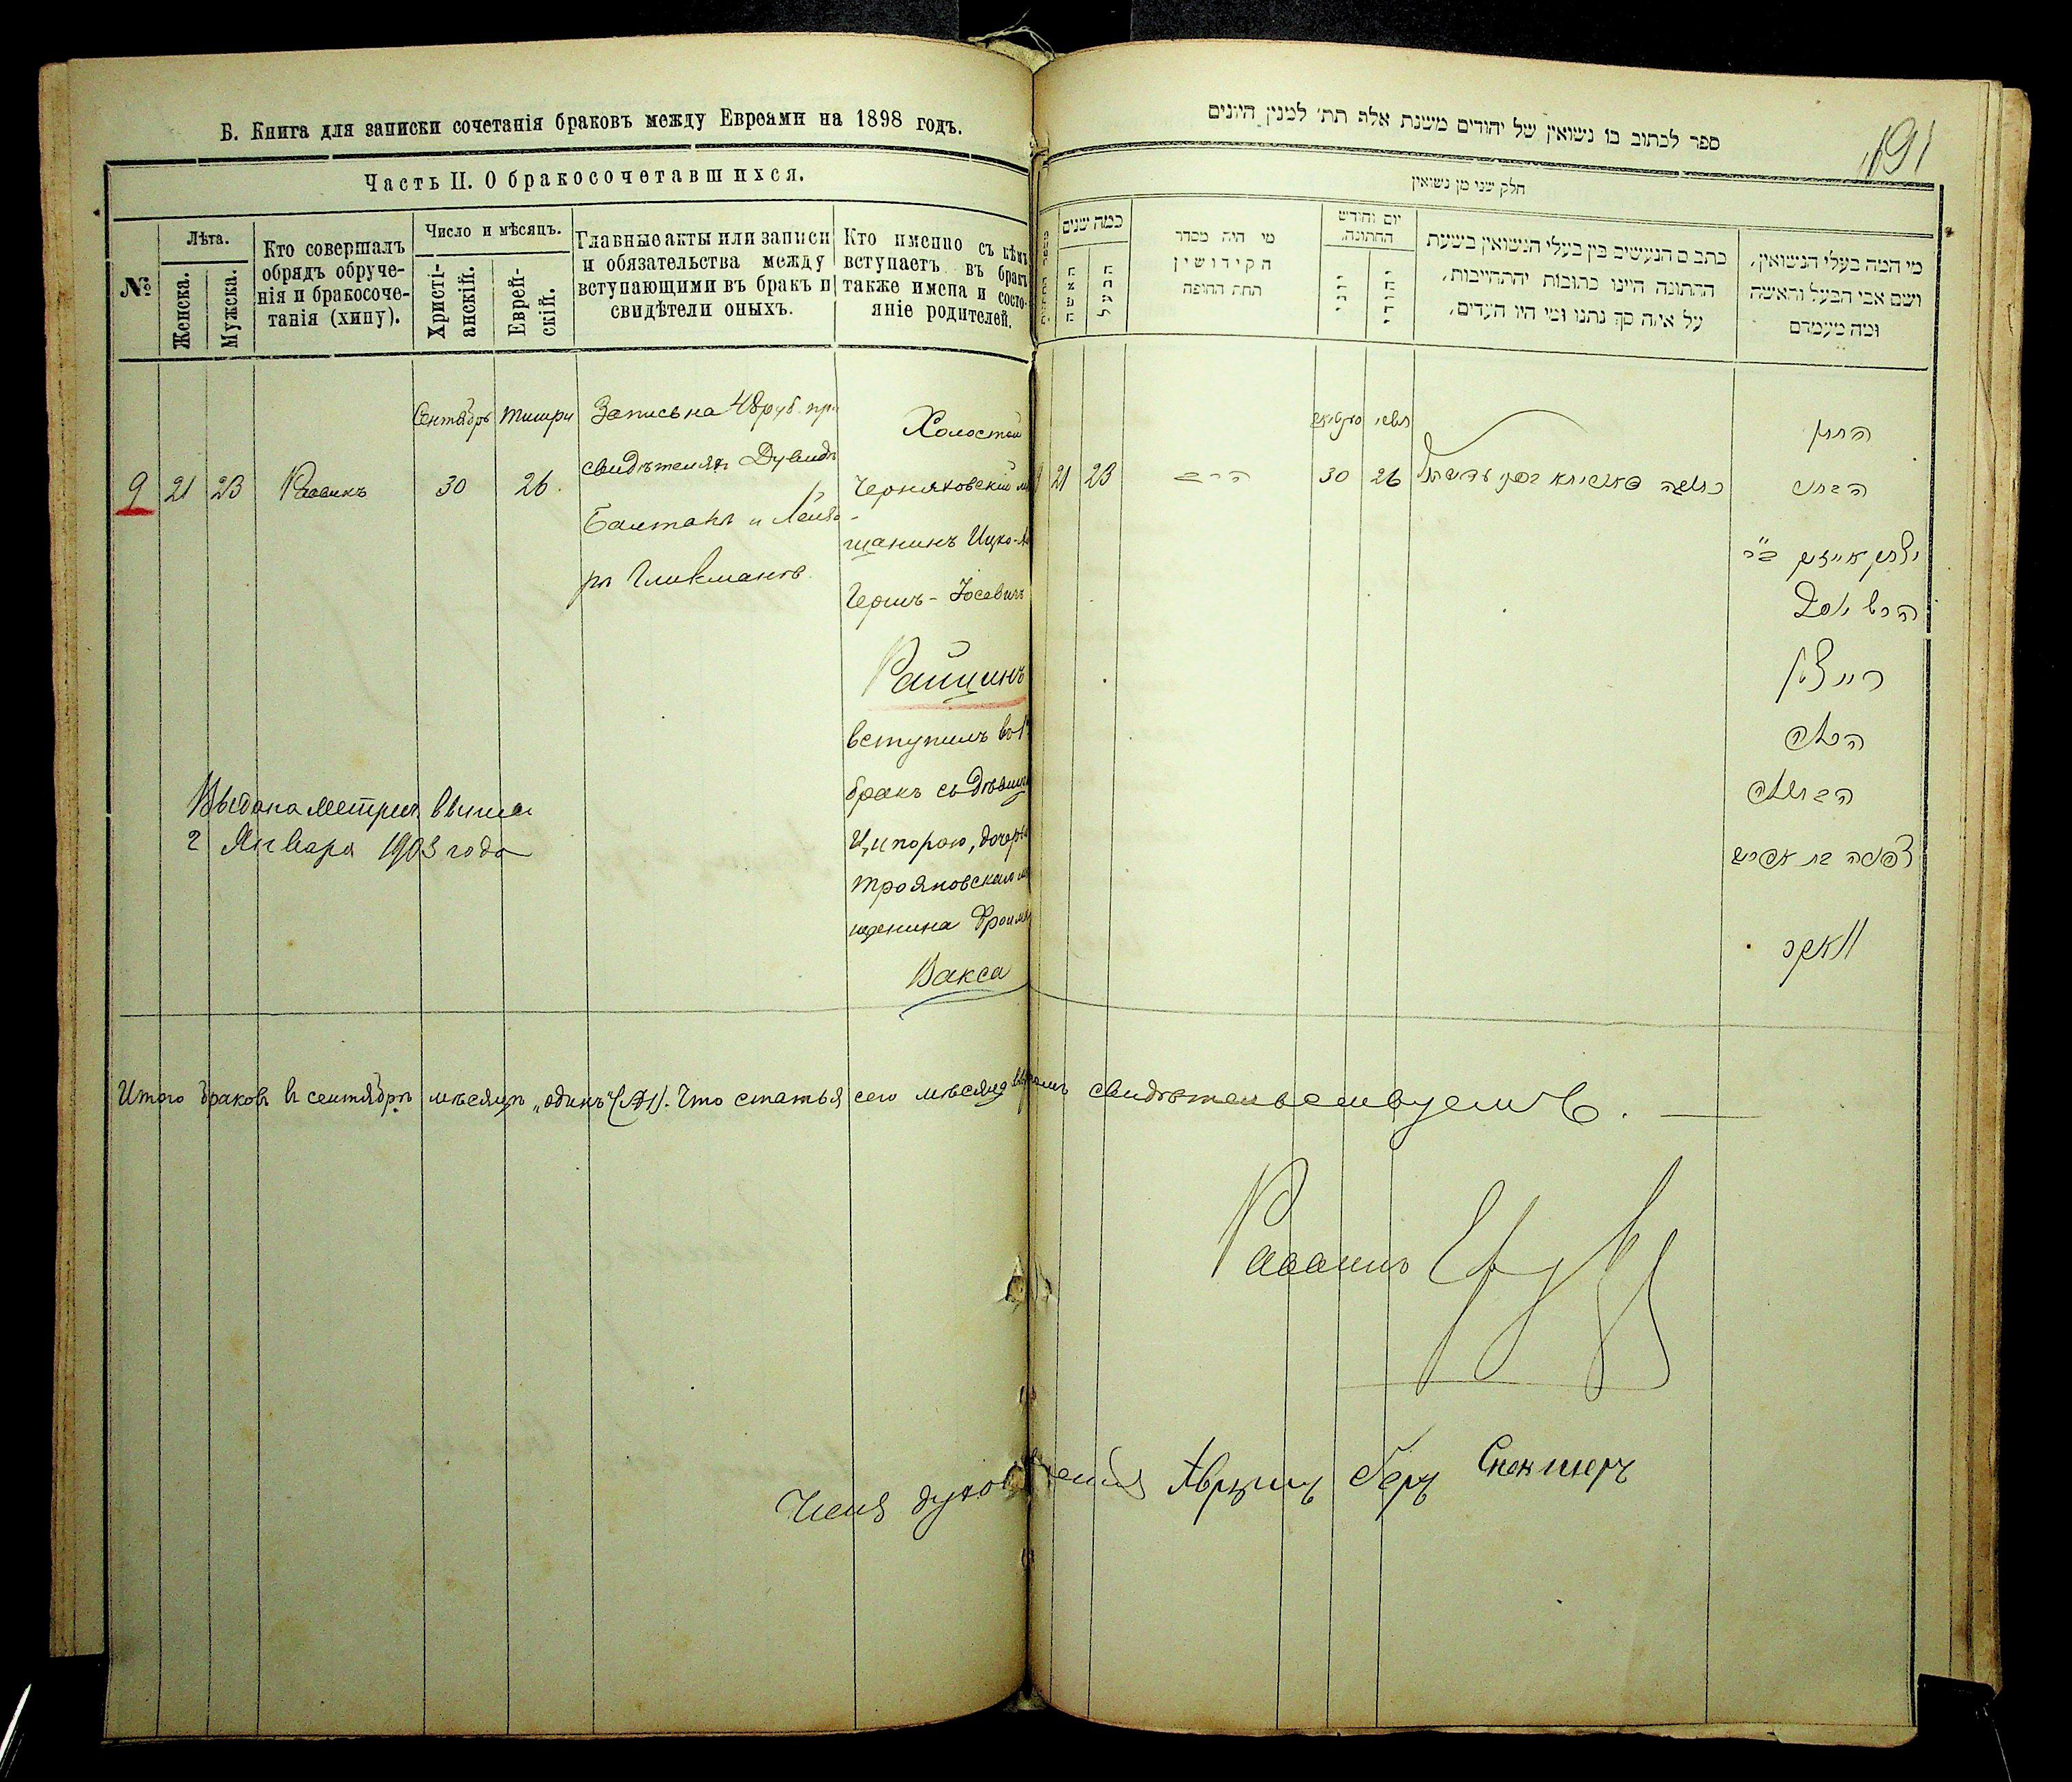 Б. Книга для записки сочетанія браковъ между Евреями на 1898 годъ.
Часть II. О бракосочетавшихся.
№
Лѣта.
Женска.
Мужска.
Кто совершалъ
обрядъ обруче-
нія и бракосоче-
танія (хипу).
Число и мѣсяцъ.
Христі-
анскій.
Еврей-
скій.
Главные акты или записи
и обязательства между
вступающими въ бракъ и
свидѣтели оныхъ.
Кто именно съ кѣмъ
вступаетъ въ бракъ
также имена и состо-
яніе родителей.
Сентябрь Тишри
9 21 23 Раввинъ 30 26
Запись на 48 руб. при
свидѣтеляхъ Дувидъ
Балтакъ и Лейзо-
ръ Гликманъ
Холостой
Черняховскій
щанинъ Ицко-
Гершъ-Іосевичъ
Райцинъ
вступилъ въ 1
бракъ съ дѣвицею
Ципорою, дочерью
трояновскаго
щанина Фроима
Вакса
Выдана метрич. выпись
2 Января 1903 года
Итого браковъ въ сентябрѣ мѣсяцѣ „одинъ" (№1). Что статья сего мѣсяца свидѣтельствуемъ.
Раввинъ
Членъ духов правленія Аврумъ Беръ
191
ספר לכתוב בו נשואין של יהודים משנת אלף תת׳ למנין היונים
חלק שני מן נשואין
כמה שנים
האשה
הבעל
מי היה מסדר
הקידושין
תחת החופה
יום וחודש
החתונה.
יוני
יהודי
כתבים הנעשים בין בעלי הנשואין בשעת
החתונה היינו כתובות והתחייבות,
על איזה סך נתנו ומי היו העדים,
מי המה בעלי הנשואין,
ושם אבי הבעל והאשה
ומה מעמדם
21 23 הרב 30 26
החתן
הבחור
יצחק אייזיק ב״ר
הרש יוסף
רייצין
הכלה
הבתולה
צפורה בת אפרים
וואקס